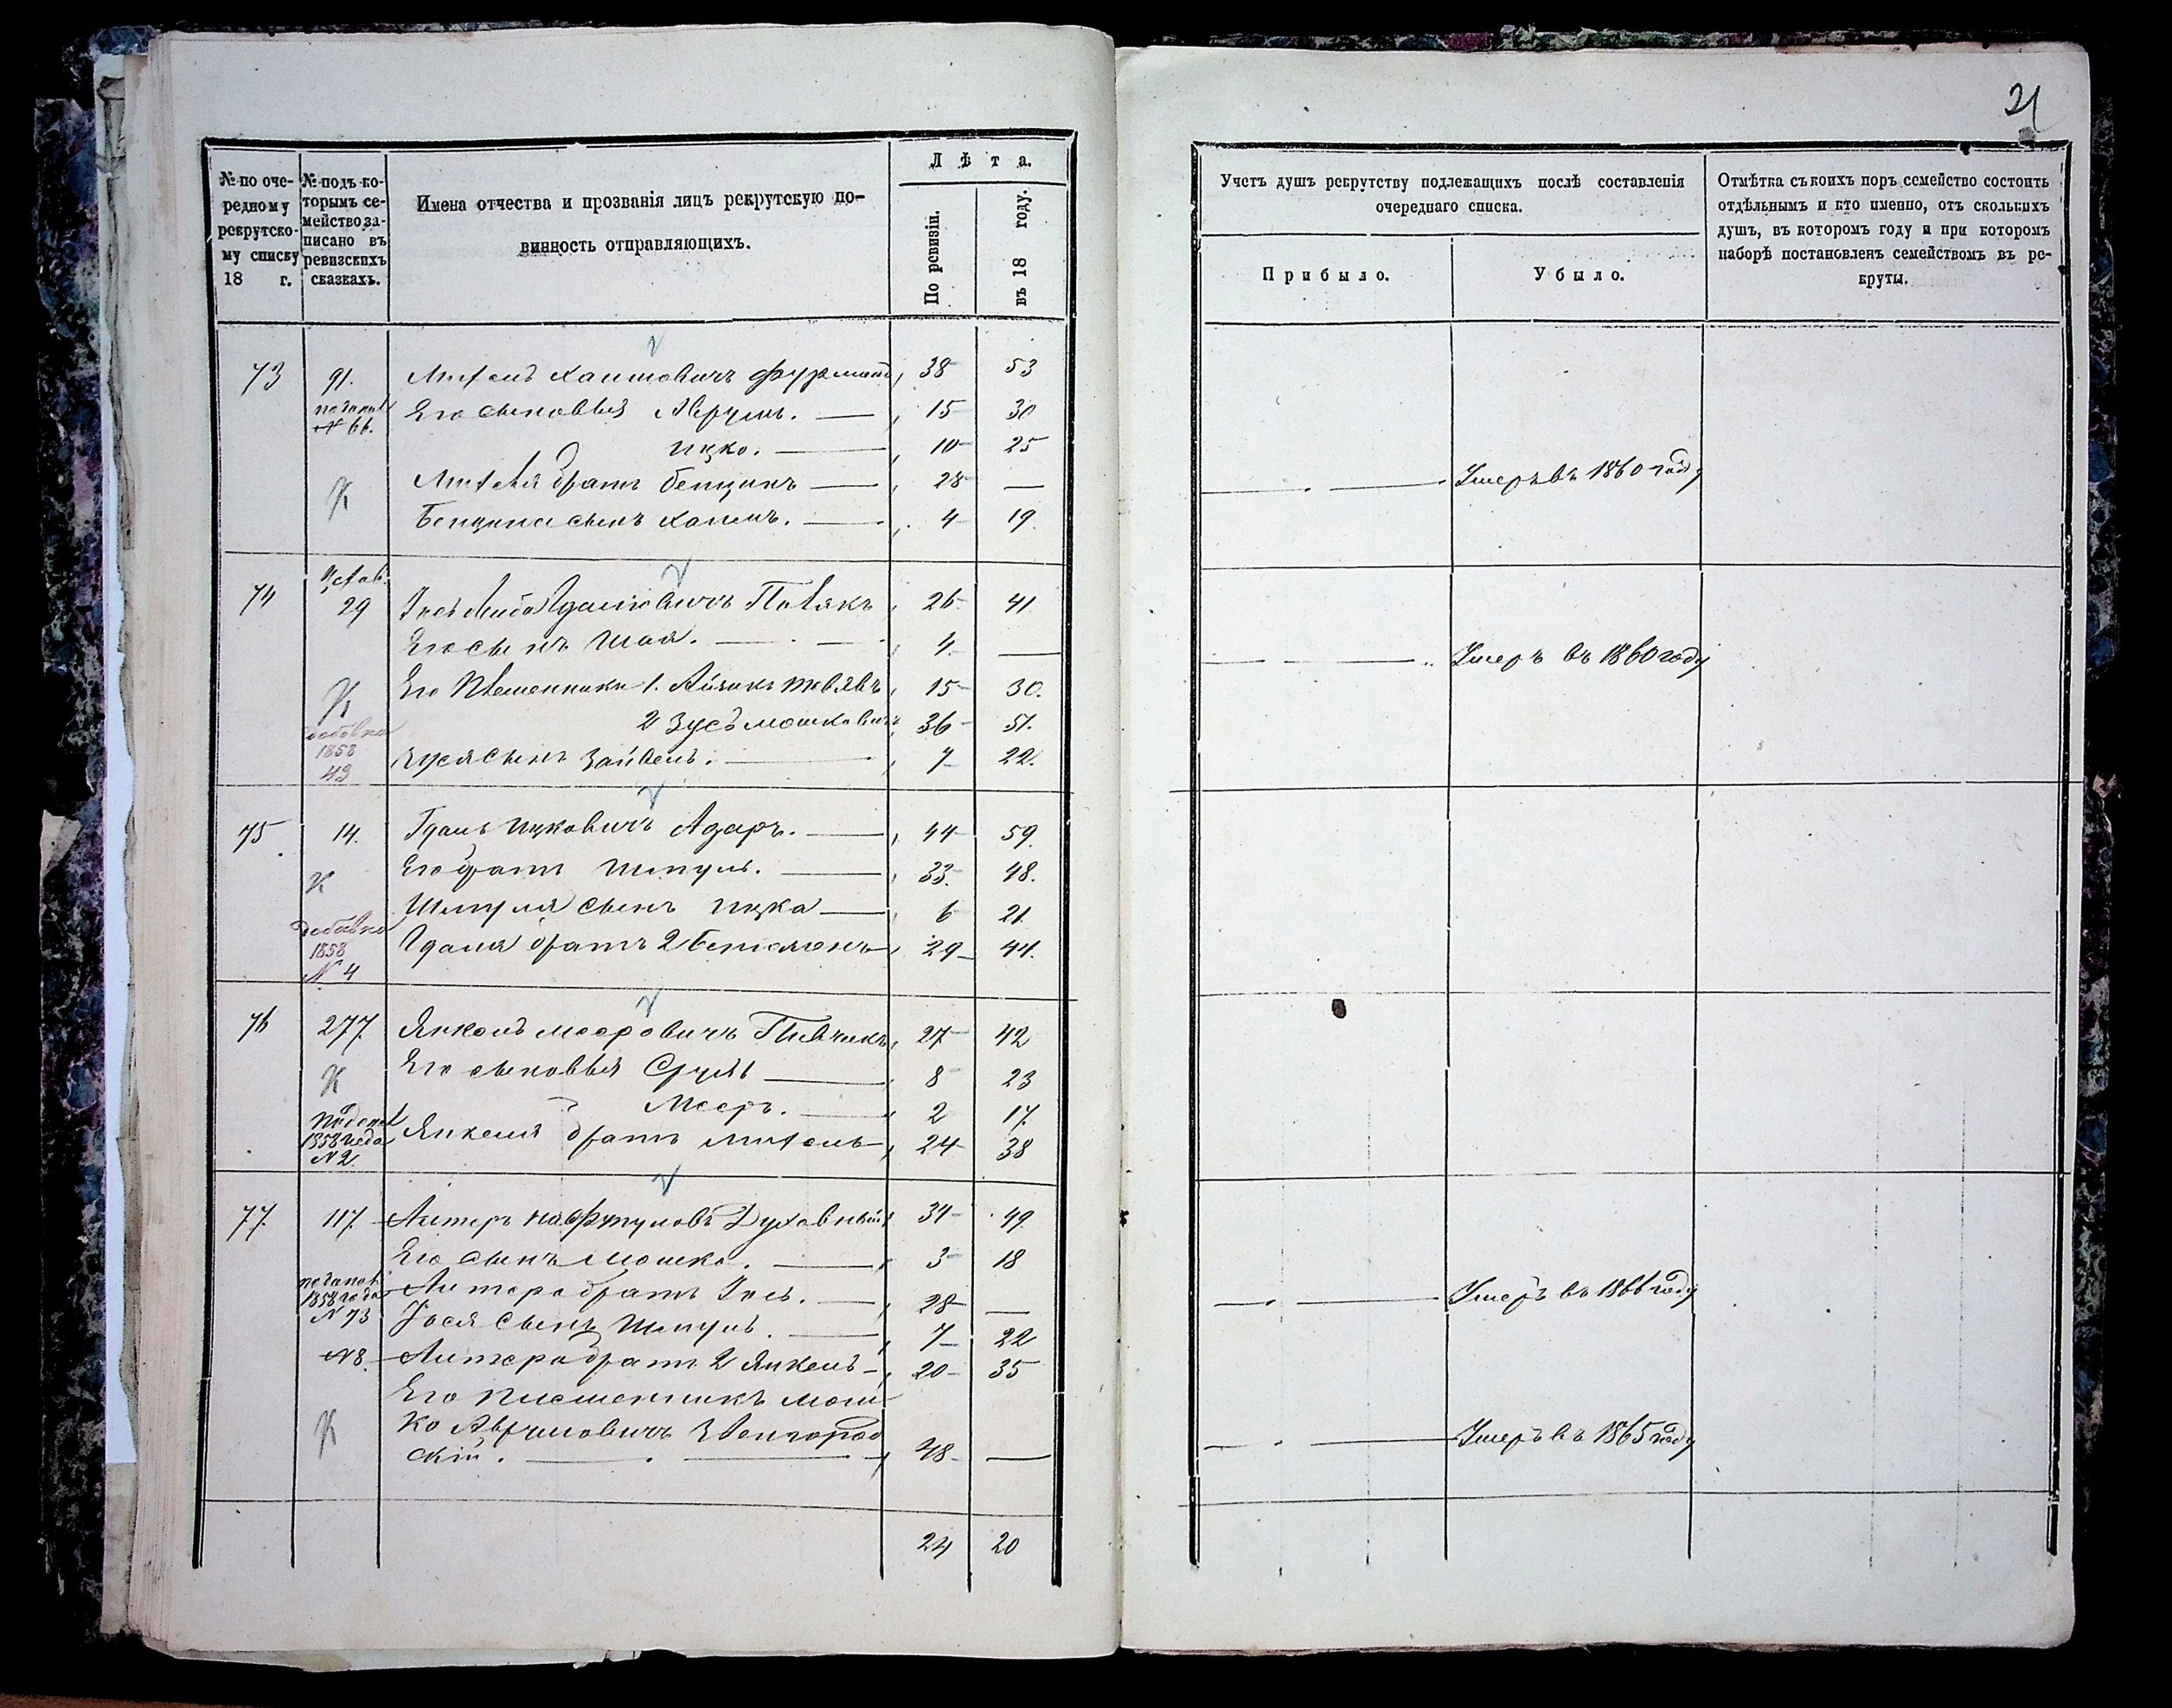 21
№ по оче-
редному
рекрутско-
му списку
18 г.
№ подъ ко-
торымъ се-
мейство за-
писано въ
ревизскихъ
сказкахъ.
Имена отчества и прозванія лицъ рекрутскую по-
винность отправляющихъ.
Лѣта.
По ревизіи.
въ 18 году.
Учетъ душъ рекрутству подлежащихъ послѣ составленія
очереднаго списка.
Прибыло.
Убыло.
Отмѣтка съ коихъ поръ семейство состоитъ
отдѣльнымъ и кто именно, отъ сколькихъ
душъ, въ которомъ году и при которомъ
наборѣ постановленъ семействомъ въ ре-
круты.
73 91. Хаимовичъ Фурманъ 38 53
№ 66. Его сыновья Аврумъ. 15 30
Ицко. 10 25
братъ Бенцинъ 28 — Умеръ въ 1860 году
Бенцина сынъ Хаимъ. 4 19
74 29 Полякъ 26 41
Его сынъ Шая. 4 — Умеръ въ 1860 году
Его племенники 1. Айзикъ 15 30.
2 Зусь Мошковичъ 36 51.
добавка
1858
43
Зуся сынъ Зайвель. 7 22.
75 14. Ицковичъ Азаръ. 44 59.
Его братъ Шмуль. 33. 48.
Шмуля сынъ Ицка 6 21
добавка
1858
№ 4
братъ 2 29 44.
76 277. Янкель Мееровичъ Пивчикъ 27 42
Его сыновья Сруль 8 23
Мееръ. 2 17.
1858 года
№ 2
Янкеля братъ 24 38
77. 117. Лейзеръ Духовный 34 49
Его сынъ Мошко. 3 18
1858 года
№ 73
братъ Іось. 28 — Умеръ въ 1866 году
Іося сынъ Шмуль. 7 22
№ 8. братъ 2 Янкель 20 35
Его племенникъ Мош-
ко Аврумовичъ Звенигород
скій. 48 — Умеръ въ 1865 году
24 20